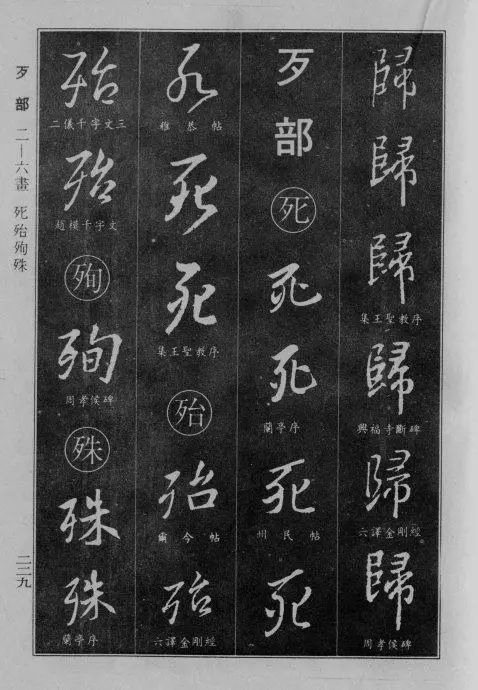 歸
歸
歸
集王聖教序
歸
興福寺斷碑
歸
六譯金剛經
歸
周孝侯碑
歹部
死
死
死
蘭亭序
死
州民帖
死
死
稚恭帖
死
死
集王聖教序
殆
殆
今帖
殆
六譯金剛經
殆
二儀千字文三
殆
趙模千字文
殉
殉
周孝侯碑
殊
殊
殊
蘭亭序
歹部 二—六畫 死殆殉殊
二二九